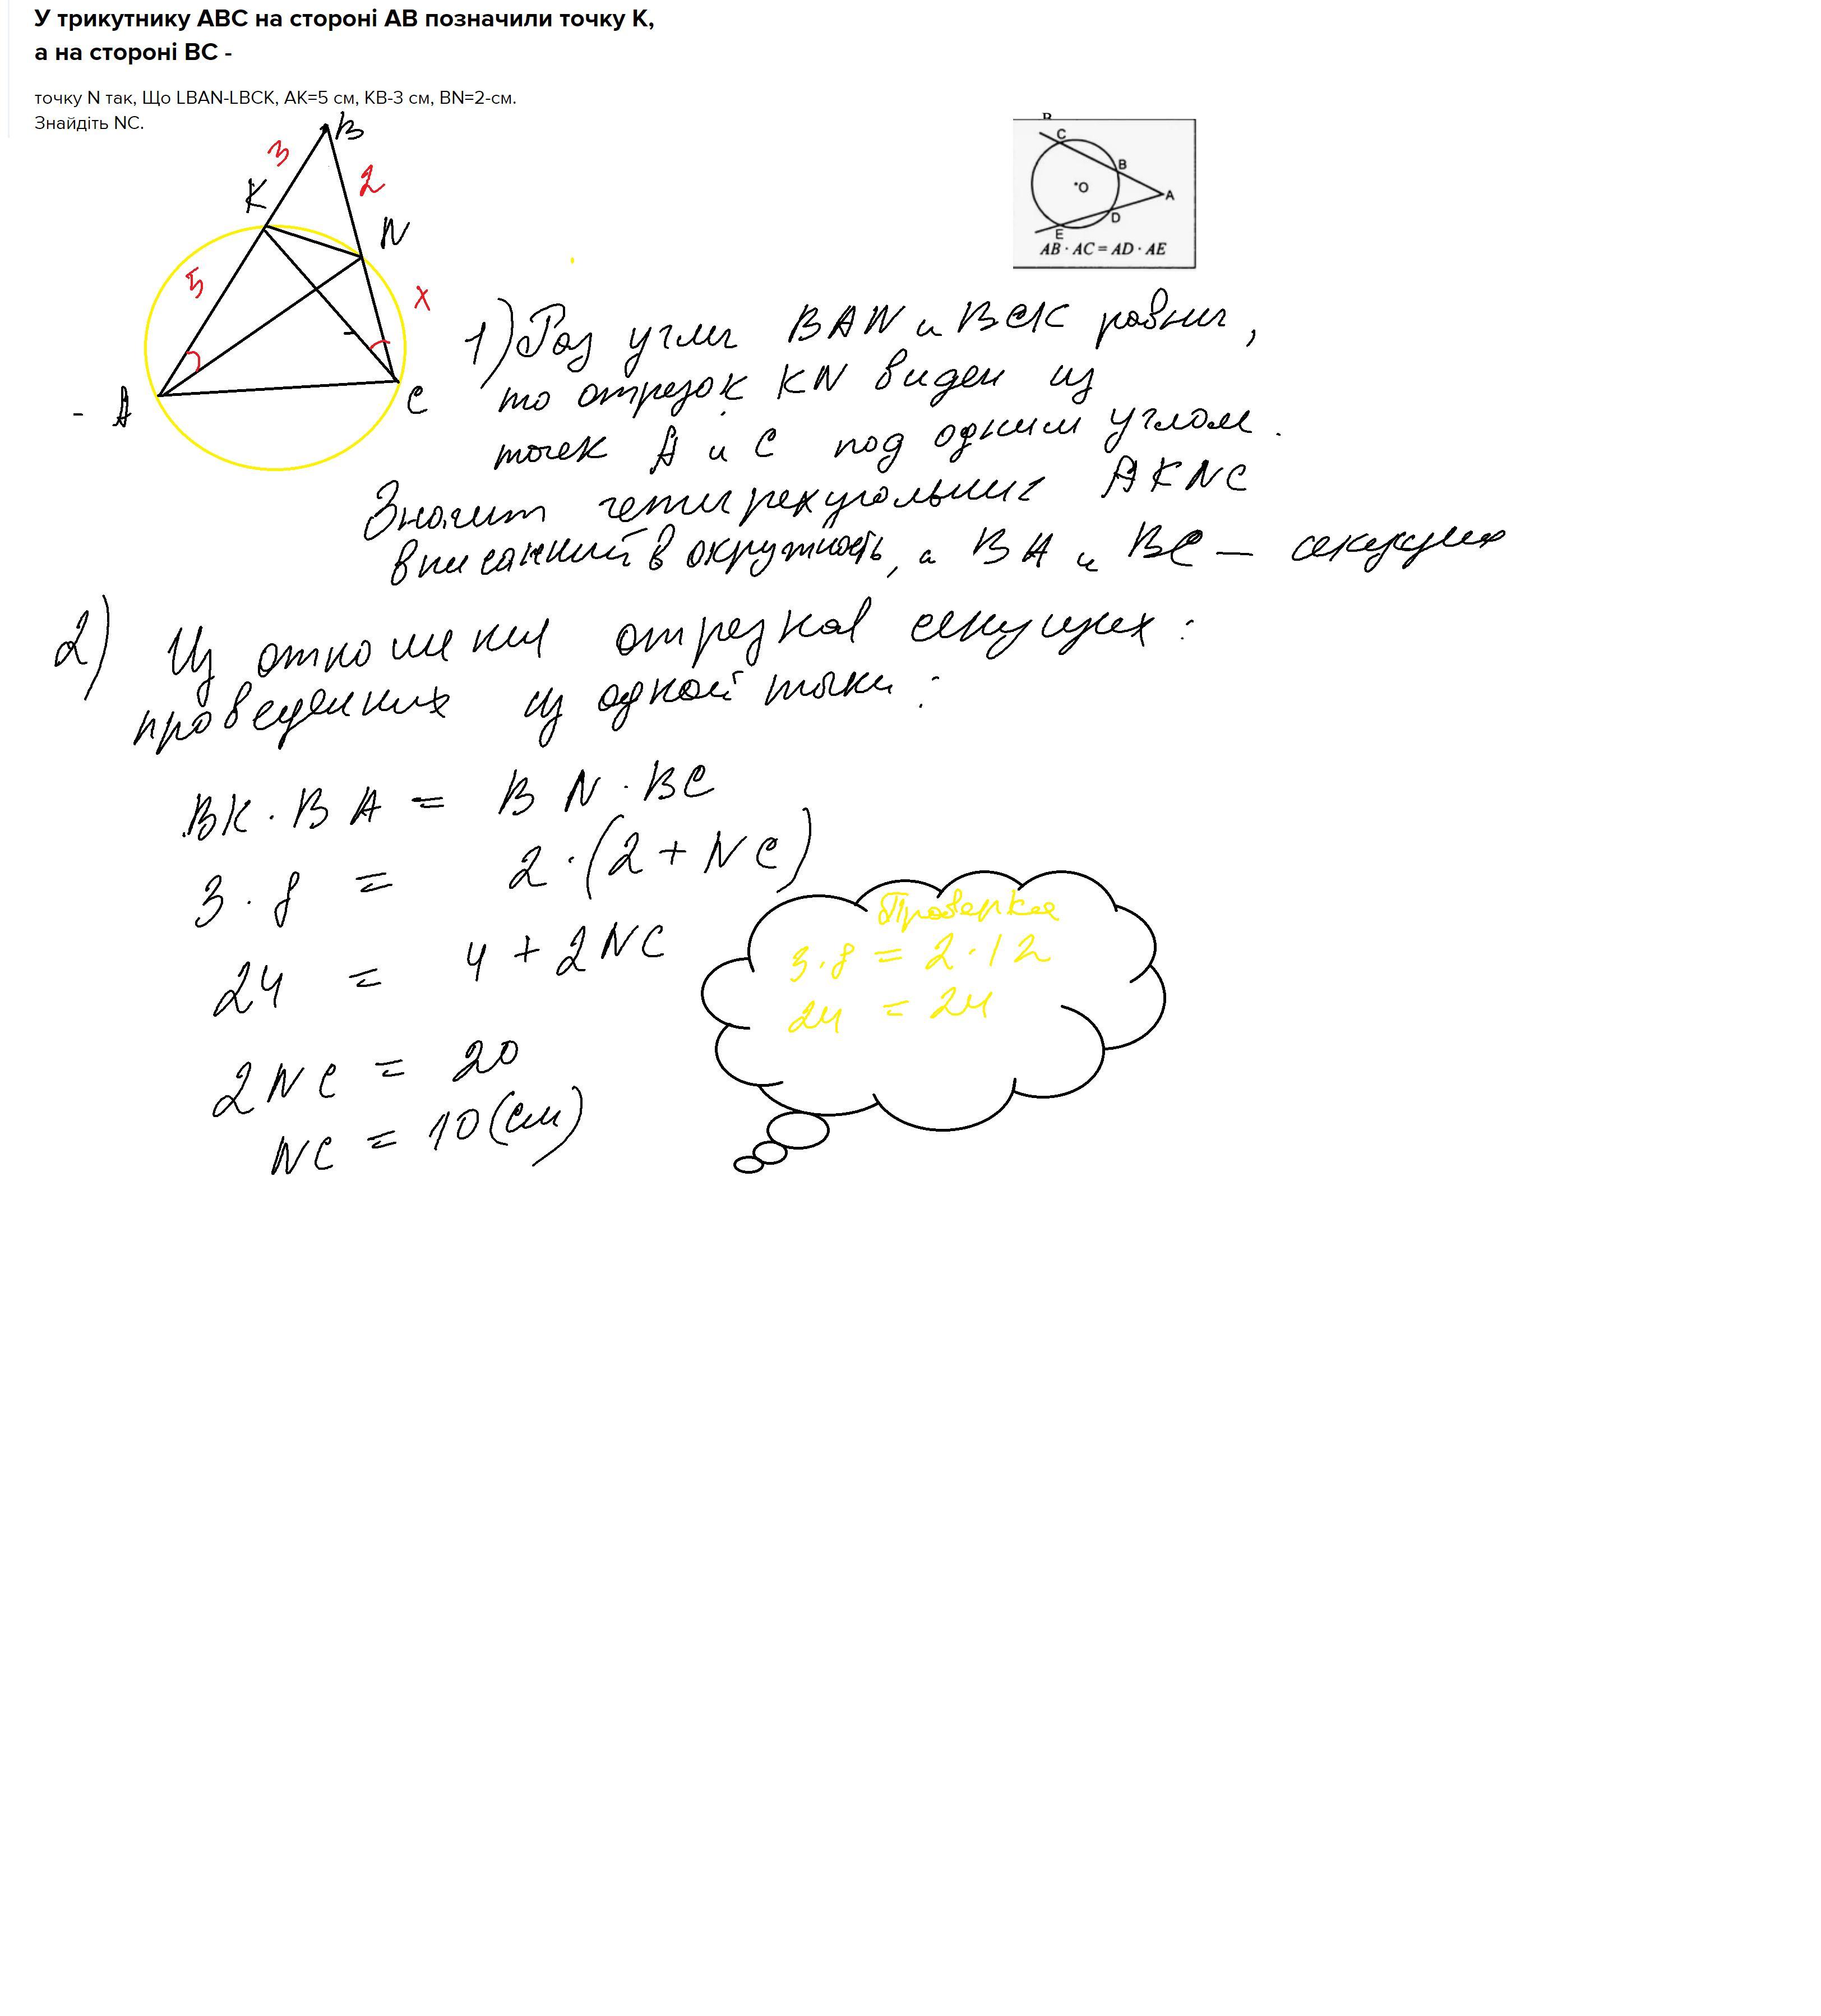 У трикутнику ABC на стороні АВ позначили точку К,
а на стороні ВС -
точку N так, Що LBAN-LBCK, AK=5 см, KB-3 см, BN=2-см.
Знайдіть NC.
B
3
2
K
N
5
x
A
C
B
C
B
O
A
D
E
AB · AC = AD · AE
1) Раз углы BAN и BCK равны,
то отрезок KN виден из
точек A и C под одним углом.
Значит четырехугольник AKNC
вписанний в окружность, а BA и BC — секущие
2) Из отношения отрезков секущих :
проведенних из одной точки :
BK · BA = BN · BC
3 · 8 = 2 · (2 + NC)
24 = 4 + 2NC
2NC = 20
NC = 10 (см)
Проверка
3 · 8 = 2 · 12
24 = 24